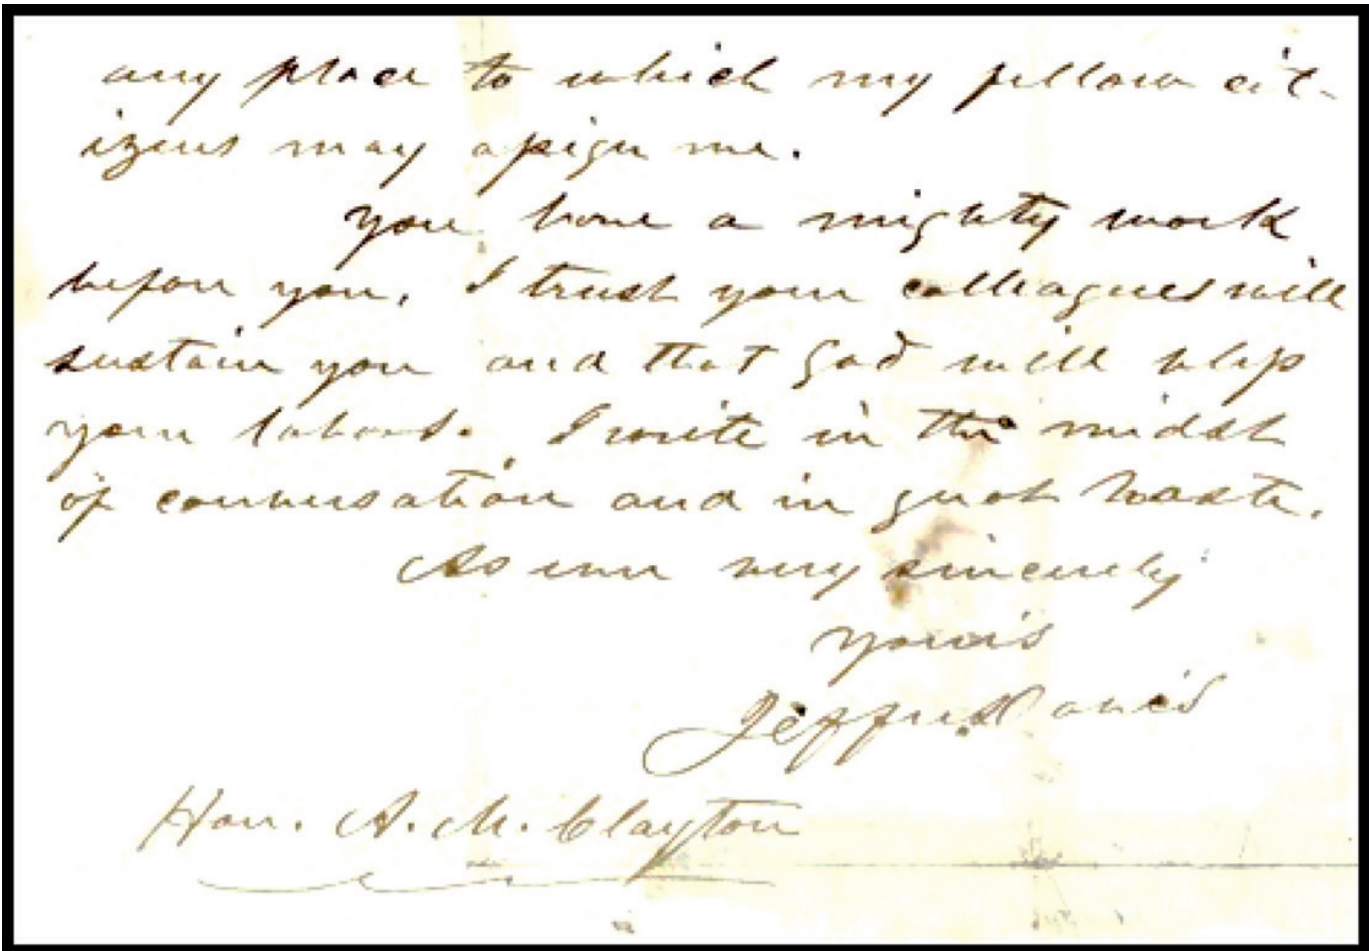 any place to which my fellow cit-
izens may assign me.
You have a mighty work
before you, I trust your colleagues will
sustain you and that God will bless
your labors. I write in the midst
of conversation and in great haste.
As ever very sincerely
yours
Jeffn. Davis
Hon. A. M. Clayton